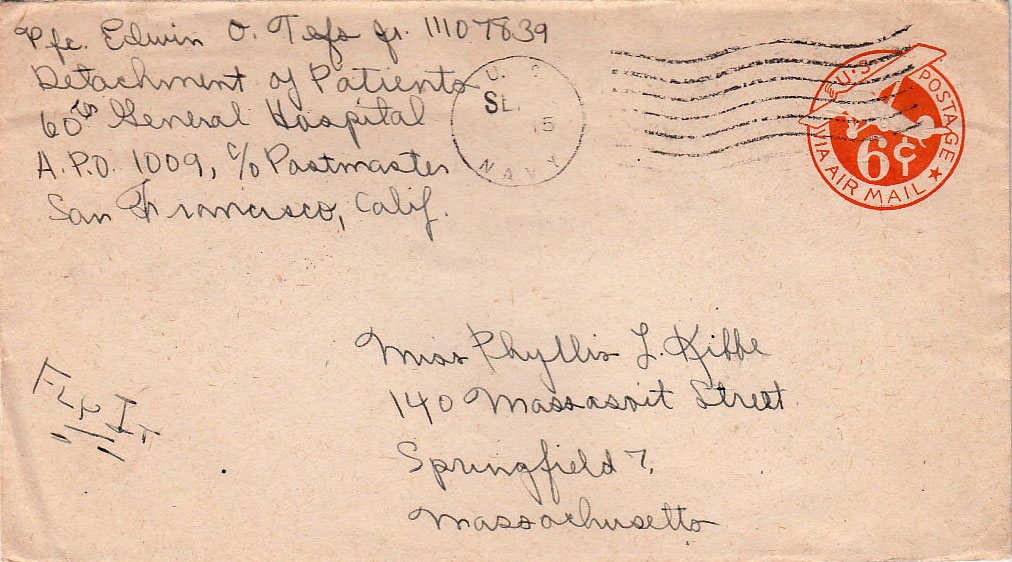 Pfc. Edwin O. Tefs Jr. 11107839
Detachment of Patients
60th General Hospital
A.P.O. 1009, c/o Postmaster
San Francisco, Calif.
U. S.
SE
15
NAVY
U.S. POSTAGE
6¢
VIA AIR MAIL
Miss Phyllis L. Kibbe
140 Massasoit Street
Springfield 7,
Massachusetts
FLY IT